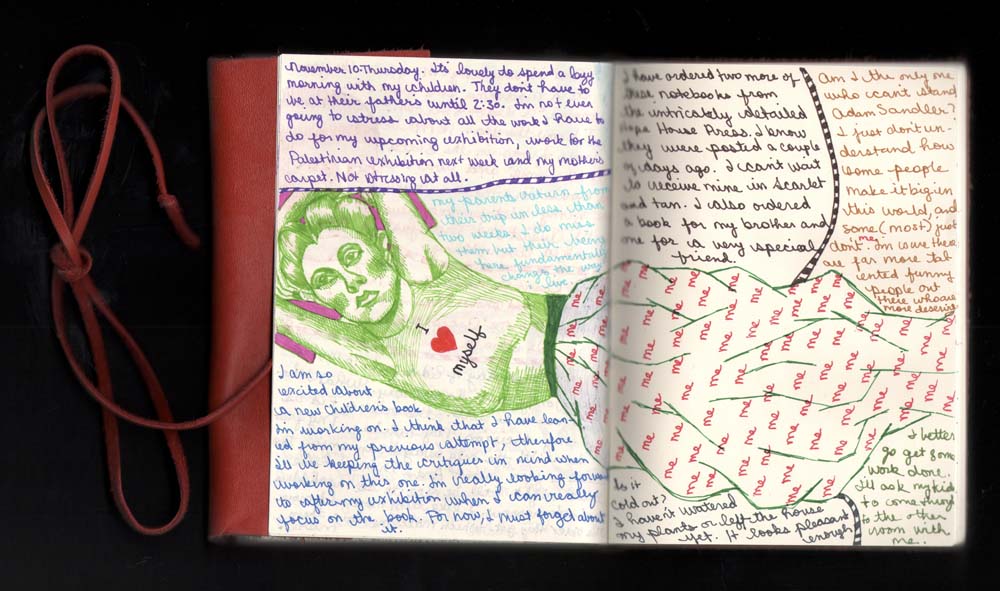 November 10. Thursday. Its lovely to spend a lazy
morning with my children. They don't have to
be at their fathers until 2:30. I'm not even
going to stress about all the work I have to
do for my upcoming exhibition, work for the
Palestinian exhibition next week and my mothers
carpet. Not stressing at all.
my parents return from
their trip in less than
two weeks. I do miss
them but their being
here fundamentally
changes the way
I live.
I ♥ myself
I am so
excited about
a new children's book
I'm working on. I think that I have learn
ed from my previous attempt, therefore
I'll be keeping the critiques in mind when
working on this one. I'm really looking forward
to after my exhibition when I can really
focus on the book. For now, I must forget about
it.
I have ordered two more of
these notebooks from
the intricately detailed
House Press. I know
they were posted a couple
of days ago. I can't wait
to receive mine in Scarlet
and tan. I also ordered
a book for my brother and
one for a very special
friend.
Am I the only one
who can't stand
Adam Sandler?
I just don't un-
derstand how
some people
make it big in
this world, and
some (most) just
don't. I'm sure there
are far more tal
ented funny
people out
there who are
more deserving
me me me me me me me me
me me me me me me me me
me me me me me me me me
me me me me me me me me
me me me me me me me me
me me me me me me me
Is it
cold out?
I haven't watered
my plants or left the house
yet. It looks pleasant
enough
I better
go get some
work done.
I'll ask my kids
to come through
to the other
room with
me.